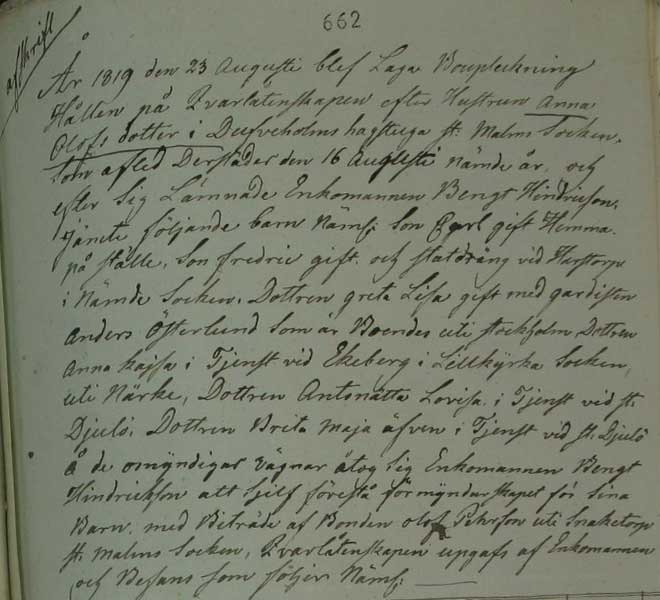 662
afskrift
År 1819 den 23 Augusti blef Laga Bouptekning
Hållen på Qvarlåtenskapen efter Hustrun Anna
Olofs dotter i Dufveholms hagstuga St. Malms Socken,
som afled Derstädes den 16 Augusti nämde år, och
efter Sig Lämnade Enkomannen Bengt Hindricson,
jämte följande barn Näml: Son Carl gift Hemma
på stället, Son fredric gift och statdräng vid Harstorp
i Nämde Socken, Dottren greta Lisa gift med gardisten
Anders Österlund Som är Boendes uti stockholm Dottren
Anna kajsa i Tjenst vid Ekeberg i Lillkyrka Socken,
uti Närke, Dottren Antonätta Lovisa i Tjenst vid St.
Djulö, Dottren Brita Maja äfven i Tjenst vid St. Djulö
Å de omyndigas vägnar åtog Sig Enkomannen Bengt
Hindrickson att Sjelf förestå förmyndarskapet för Sina
Barn, med Biträde af Bonden olof Pehrson uti Snaketorp
St. Malms Socken, Qvarlåtenskapen upgafs af Enkomannen
och Befans som följer Näml: